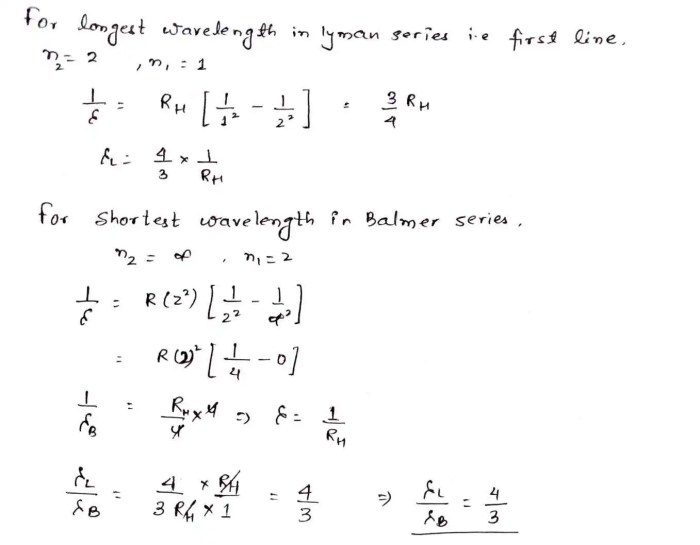 For longest wavelength in lyman series i.e first line.
n₂ = 2 , n₁ = 1
1/λ = R_H [1/1² - 1/2²] = 3/4 R_H
λ_L = 4/3 × 1/R_H
for shortest wavelength in Balmer series.
n₂ = ∞ , n₁ = 2
1/λ = R(z²) [1/2² - 1/∞²]
= R(2)² [1/4 - 0]
1/λ_B = R_H × 4 / 4 ⇒ λ = 1/R_H
λ_L/λ_B = 4 × R_H / 3 R_H × 1 = 4/3 ⇒ λ_L/λ_B = 4/3